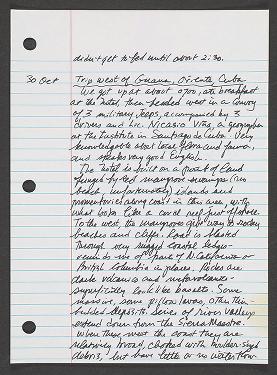 didn't get to bed until about 2:30.
30 Oct Trip west of Guama, Oriente, Cuba
We got up at about 0700, ate breakfast
at the hotel, then headed west in a convoy
of 3 military Jeeps, accompanied by 3
drivers and Lic. Nicasio Viña, a geographer
at the Institute in Santiago de Cuba. Very
knowledgable about local flora and fauna,
and speaks very good English.
The hotel is built on a point of land
fringed by red mangrove swamps (no
beach, unfortunately), islands and
promontories along coast in this area, with
what looks like a coral reef just offshore.
To the west, the mangroves give way to rocky
beaches and cliffs. Road is blasted
through very rugged coastal ledges-
reminds me of part of N. California or
British Columbia in places. Rocks are
dark volcanics and metavolcanics-
superficially look like basalts. Some
massive, some pillow lavas, others thin
bedded deposits. Series of river valleys
extend down from the Sierra Maestra.
Where these meet the coast they are
relatively broad, choked with boulder-sized
debris, but have little or no water flow.